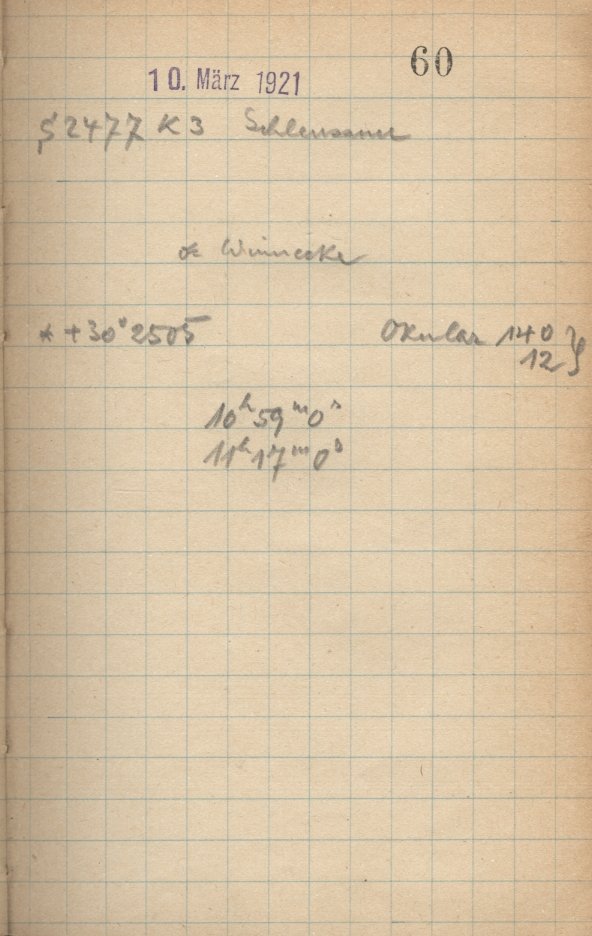 60
10. März 1921
2477 K 3 Schleussner
Winnecke
* +30° 2505 Okular 140 }
12
10ʰ 59ᵐ 0ˢ
11ʰ 17ᵐ 0ˢ